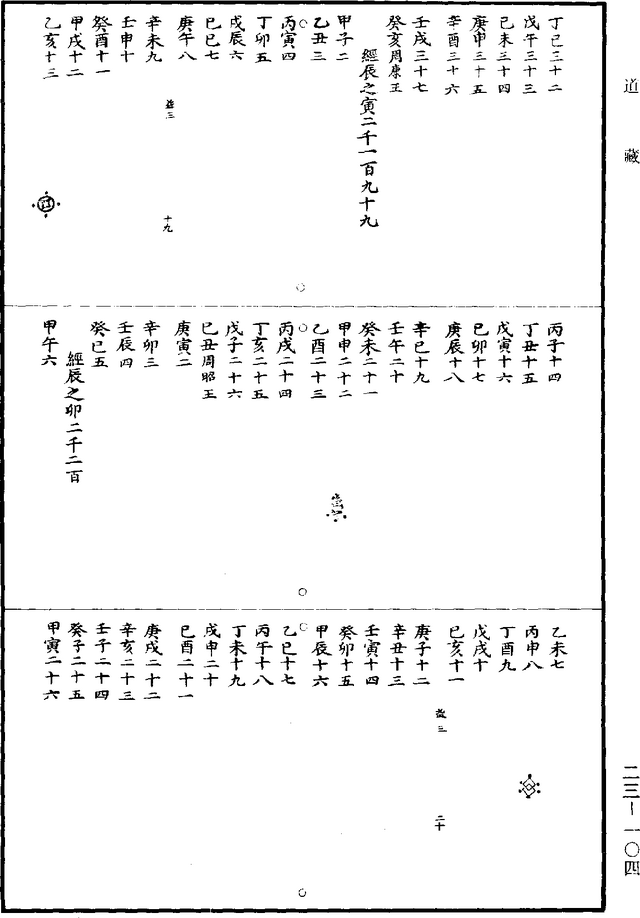 道藏
丁巳三十二
戊午三十三
己未三十四
庚申三十五
辛酉三十六
壬戌三十七
癸亥周康王
經辰之寅二千一百九十九
甲子二
乙丑三
丙寅四
丁卯五
戊辰六
己巳七
庚午八
益三
十九
辛未九
壬申十
癸酉十一
甲戌十二
乙亥十三
丙子十四
丁丑十五
戊寅十六
己卯十七
庚辰十八
辛巳十九
壬午二十
癸未二十一
甲申二十二
乙酉二十三
丙戌二十四
丁亥二十五
戊子二十六
己丑周昭王
庚寅二
辛卯三
壬辰四
癸巳五
經辰之卯二千二百
甲午六
乙未七
丙申八
丁酉九
戊戌十
己亥十一
益三
二十
庚子十二
辛丑十三
壬寅十四
癸卯十五
甲辰十六
乙巳十七
丙午十八
丁未十九
戊申二十
己酉二十一
庚戌二十二
辛亥二十三
壬子二十四
癸子二十五
甲寅二十六
二三—一〇四